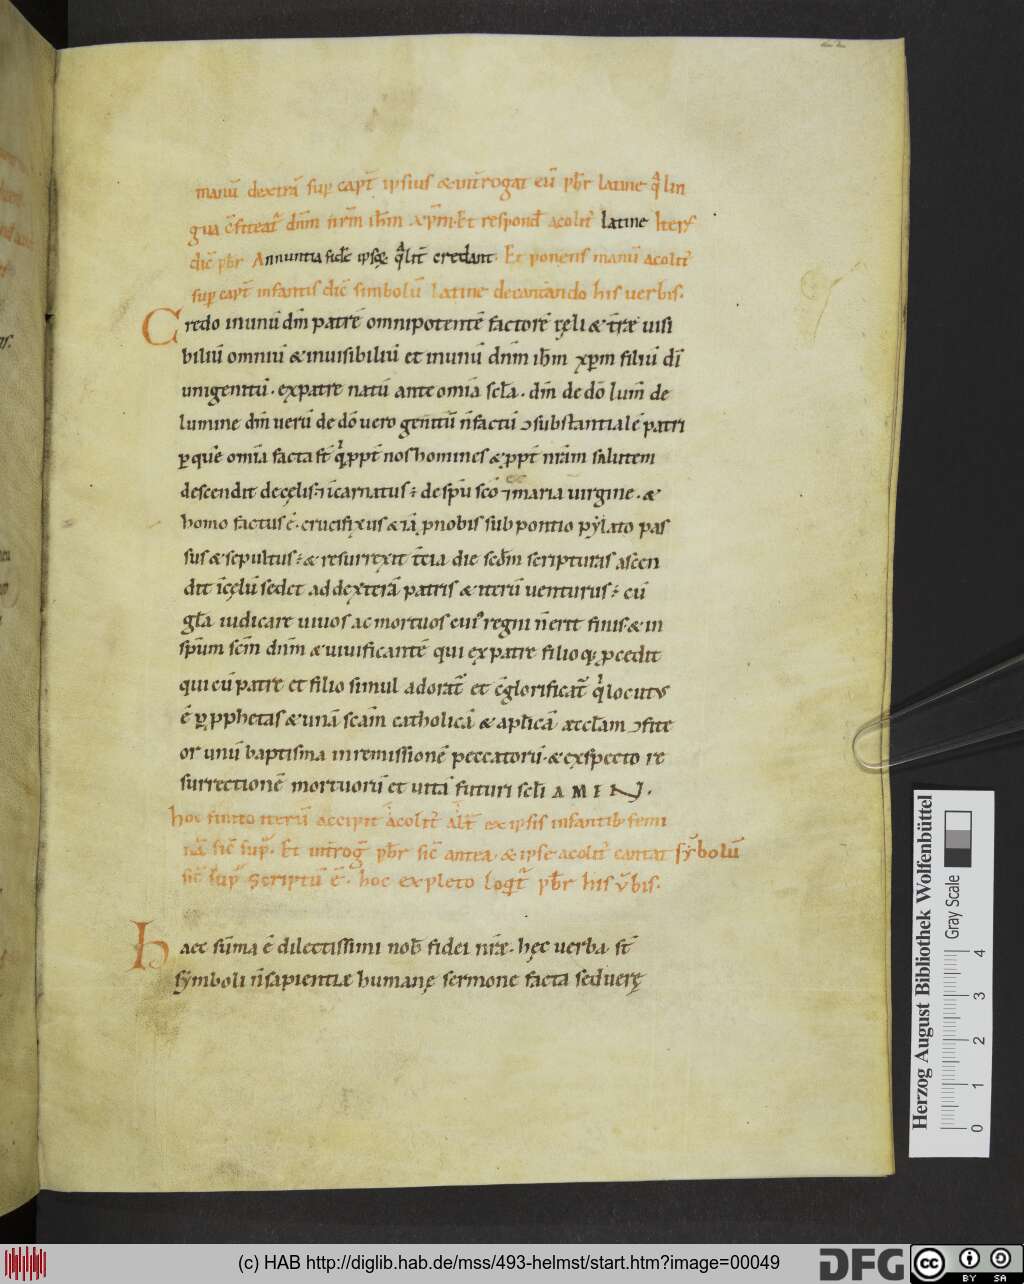 manū dextrā sup capt̄ ipsius &int̄rogat eū p̄br latine q̄ lin
gua c̄fiteat̄ dn̄m nr̄m ih̄m xp̄m. Et respond̄ acolit̄ latine Iter̄
dic̄ p̄br Annuntia fidē ipsoꝝ. q̄lit̄ credant. Et ponens manū acolit̄
sup capt̄ infantis dic̄ simbolū latine decantando his uerbis.
Credo inunū dm̄ patrē omnipotentē factorē cęli & t̄ræ uisi
biliū omniū &inuisibiliū et inunū dn̄m ih̄m xp̄m filiū dī
unigenitū. expatre natū ante om̄ia sc̄la. dm̄ de dō lum̄ de
lumine dm̄ uerū de dō uero genitū n̄factū ↄsubstantialē patri
ꝑquē om̄ia facta st̄ q̄ ꝓpt̄ nos homines &ꝓpt̄ nr̄am salutem
descendit decęlis. īcarnatus. despū scō īmaria uirgine. &
homo factus ē. crucifixus &iā ꝓnobis sub pontio pẏlato pas
sus &sepultus. &resurrexit t̄cia die scd̄m scripturas ascen
dit īcęlū sedet addexterā patris &iterū uenturus. cū
gl̄a iudicare uiuos ac mortuos cui᾽ regni n̄erit finis. &in
spm̄ scm̄ dn̄m &uiuificantē qui expatre filioq; ꝓcedit
qui cū patre et filio simul adorat̄ et c̄glorificat̄ q̄ locutus
ē ꝑ ꝓphetas &unā scām catholicā &aplicā æccl̄am ↄfite
or unū baptisma inremissionē peccatorū. &exspecto re
surrectionē mortuorū et uitā futuri sc̄li AMEN.
hoc finito iterū accipit acolit̄ alt̄ ex ipsis infantib; femi
nā sic̄ sup̄. Et int̄roḡ p̄br sic̄ antea. &ipse acolit̄ cantat sẏbolū
sic̄ sup̄ scriptū ē. hoc expleto loqit̄ p̄br his v̄bis.
Haec sūma ē dilectissimi nob̄ fidei nr̄æ. hęc uerba st̄
sẏmboli n̄sapientiæ humanę sermone facta seduerę
Herzog August Bibliothek Wolfenbüttel
Gray Scale
0 1 2 3 4
(c) HAB http://diglib.hab.de/mss/493-helmst/start.htm?image=00049
DFG
cc BY SA